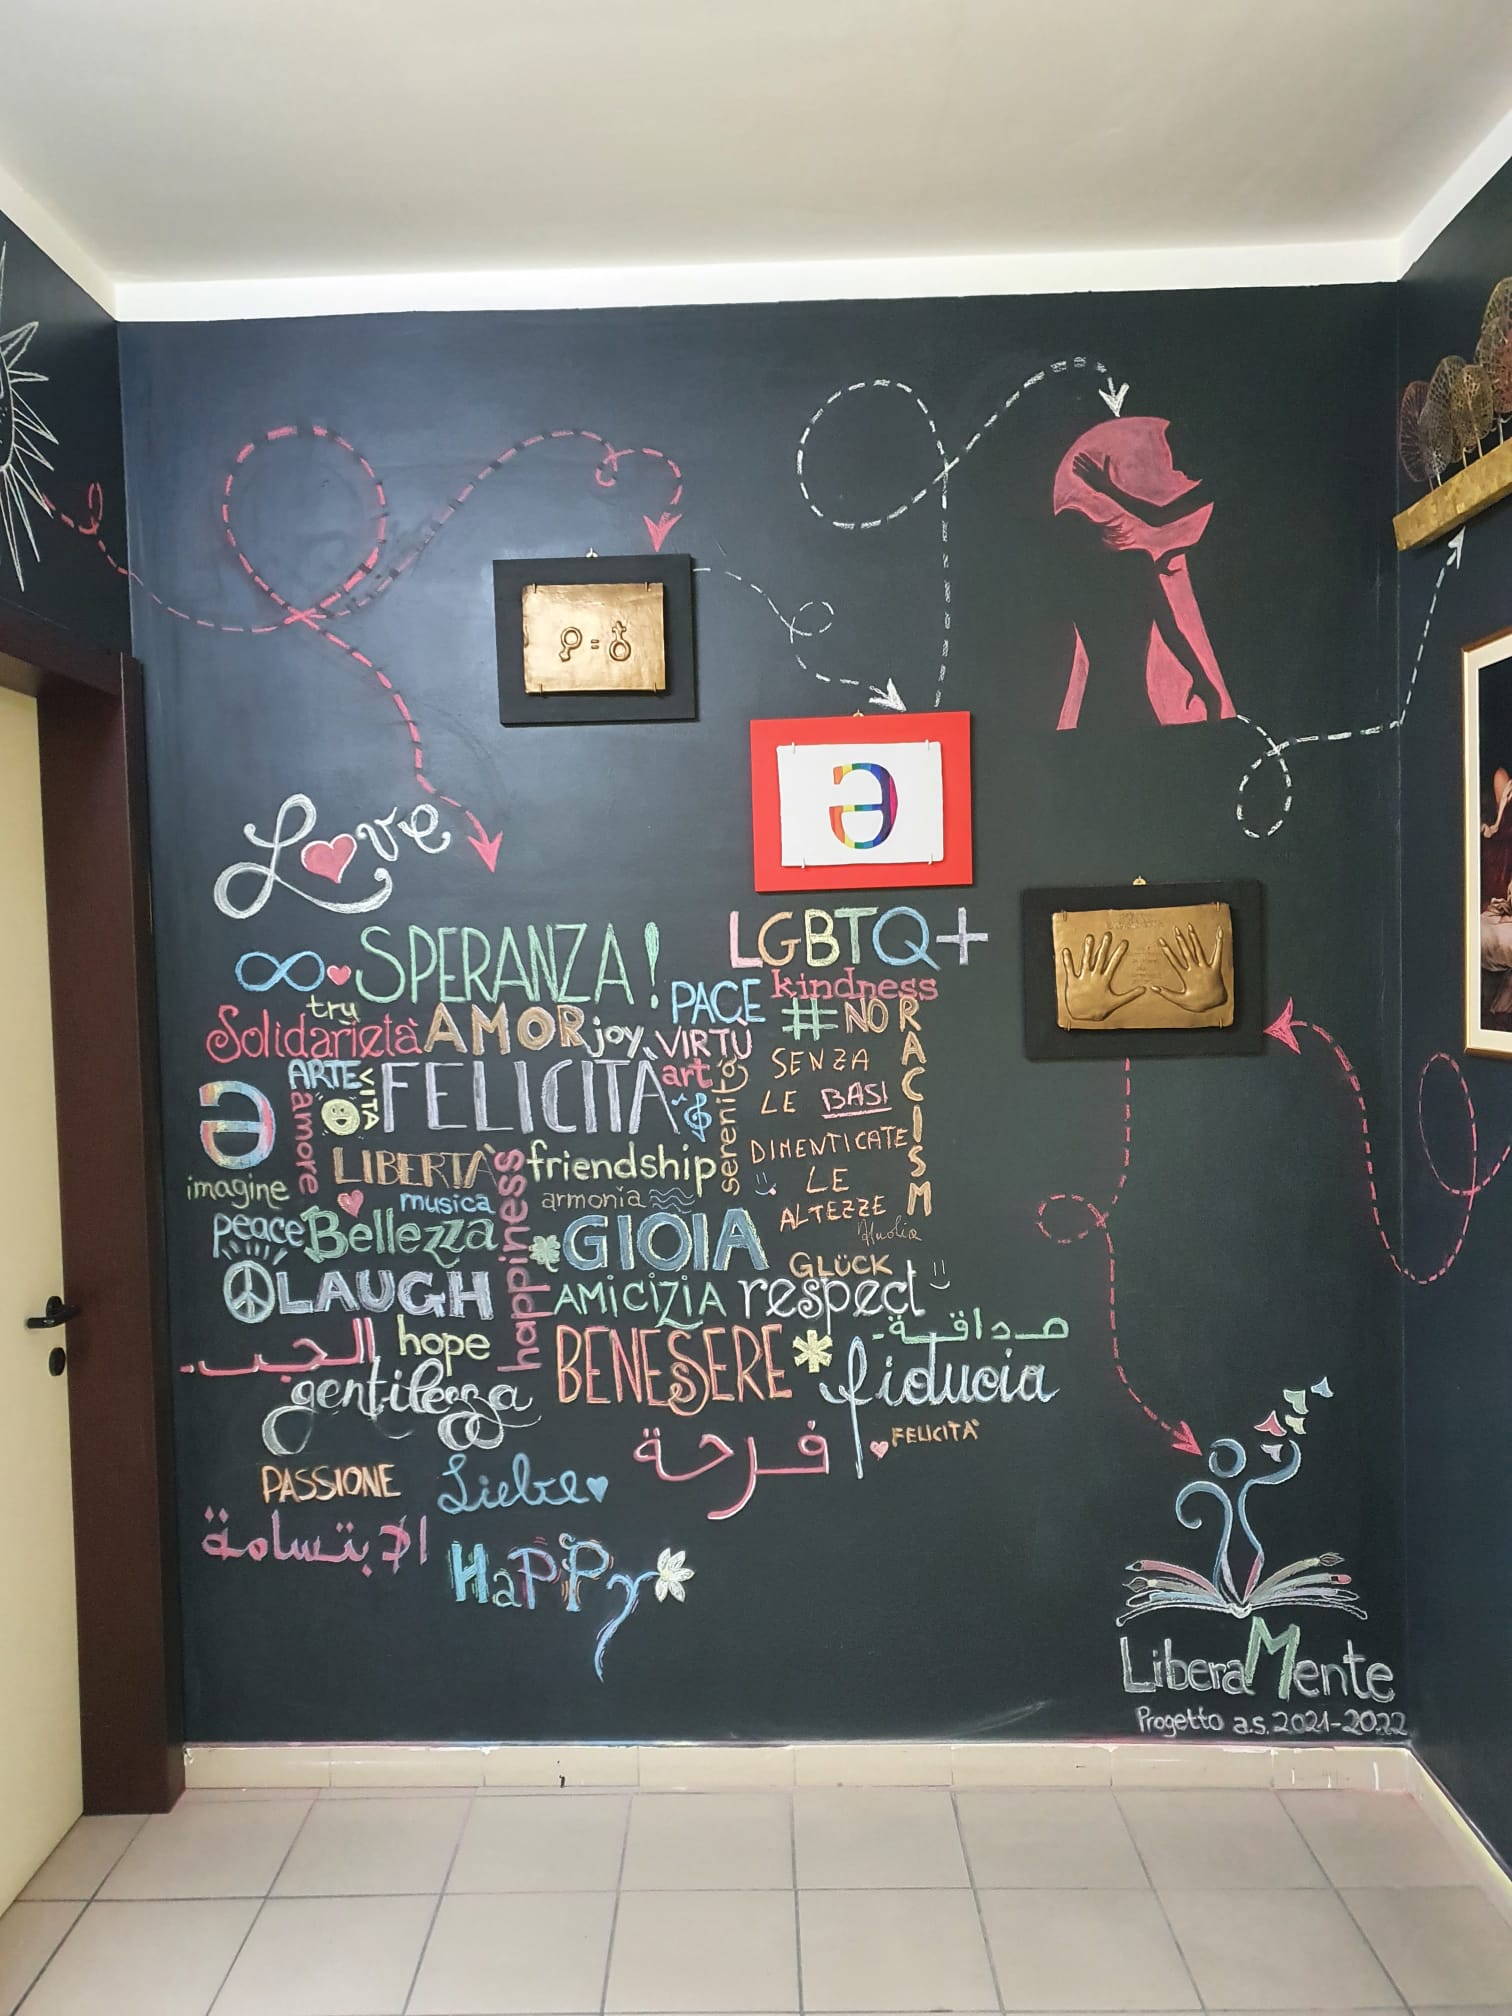 ♂ = ♀
ə
Love
SPERANZA!
LGBTQ+
kindness
PACE
#NO RACISM
try
Solidarietà
AMOR
joy
VIRTÙ
SENZA
LE BASI
DIMENTICATE
LE
ALTEZZE
ARTE
VITA
FELICITÀ
art
serenità
ə
amore
LIBERTÀ
friendship
imagine
musica
armonia
peace
Bellezza
happiness
GIOIA
GLÜCK
LAUGH
AMICIZIA
respect
صداقة
الحب
hope
BENESSERE
fiducia
gentilezza
فرحة
FELICITÀ
PASSIONE
Liebe
الإبتسامة
HaPPy
LiberaMente
Progetto a.s. 2021-2022